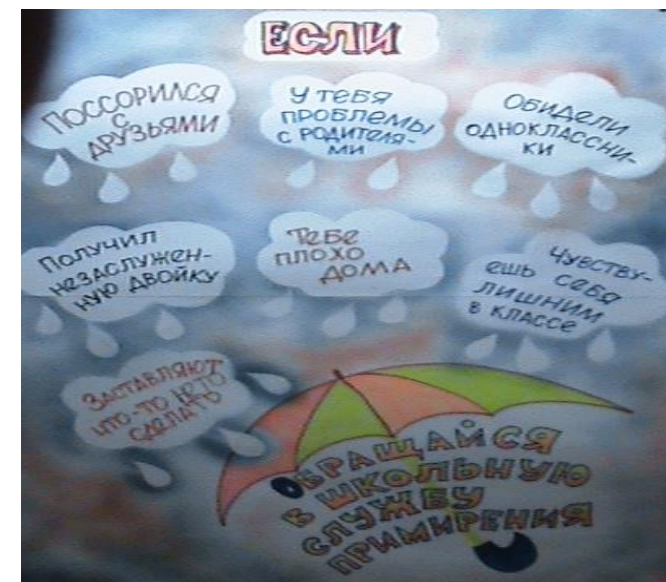 ЕСЛИ
ПОССОРИЛСЯ
С
ДРУЗЬЯМИ
У ТЕБЯ
ПРОБЛЕМЫ
С РОДИТЕЛЯ-
МИ
ОБИДЕЛИ
ОДНОКЛАССНИ-
КИ
ПОЛУЧИЛ
НЕЗАСЛУЖЕН-
НУЮ ДВОЙКУ
ТЕБЕ
ПЛОХО
ДОМА
ЧУВСТВУ-
ЕШЬ СЕБЯ
ЛИШНИМ
В КЛАССЕ
ЗАСТАВЛЯЮТ
ЧТО-ТО
СДЕЛАТЬ
ОБРАЩАЙСЯ
В ШКОЛЬНУЮ
СЛУЖБУ
ПРИМИРЕНИЯ